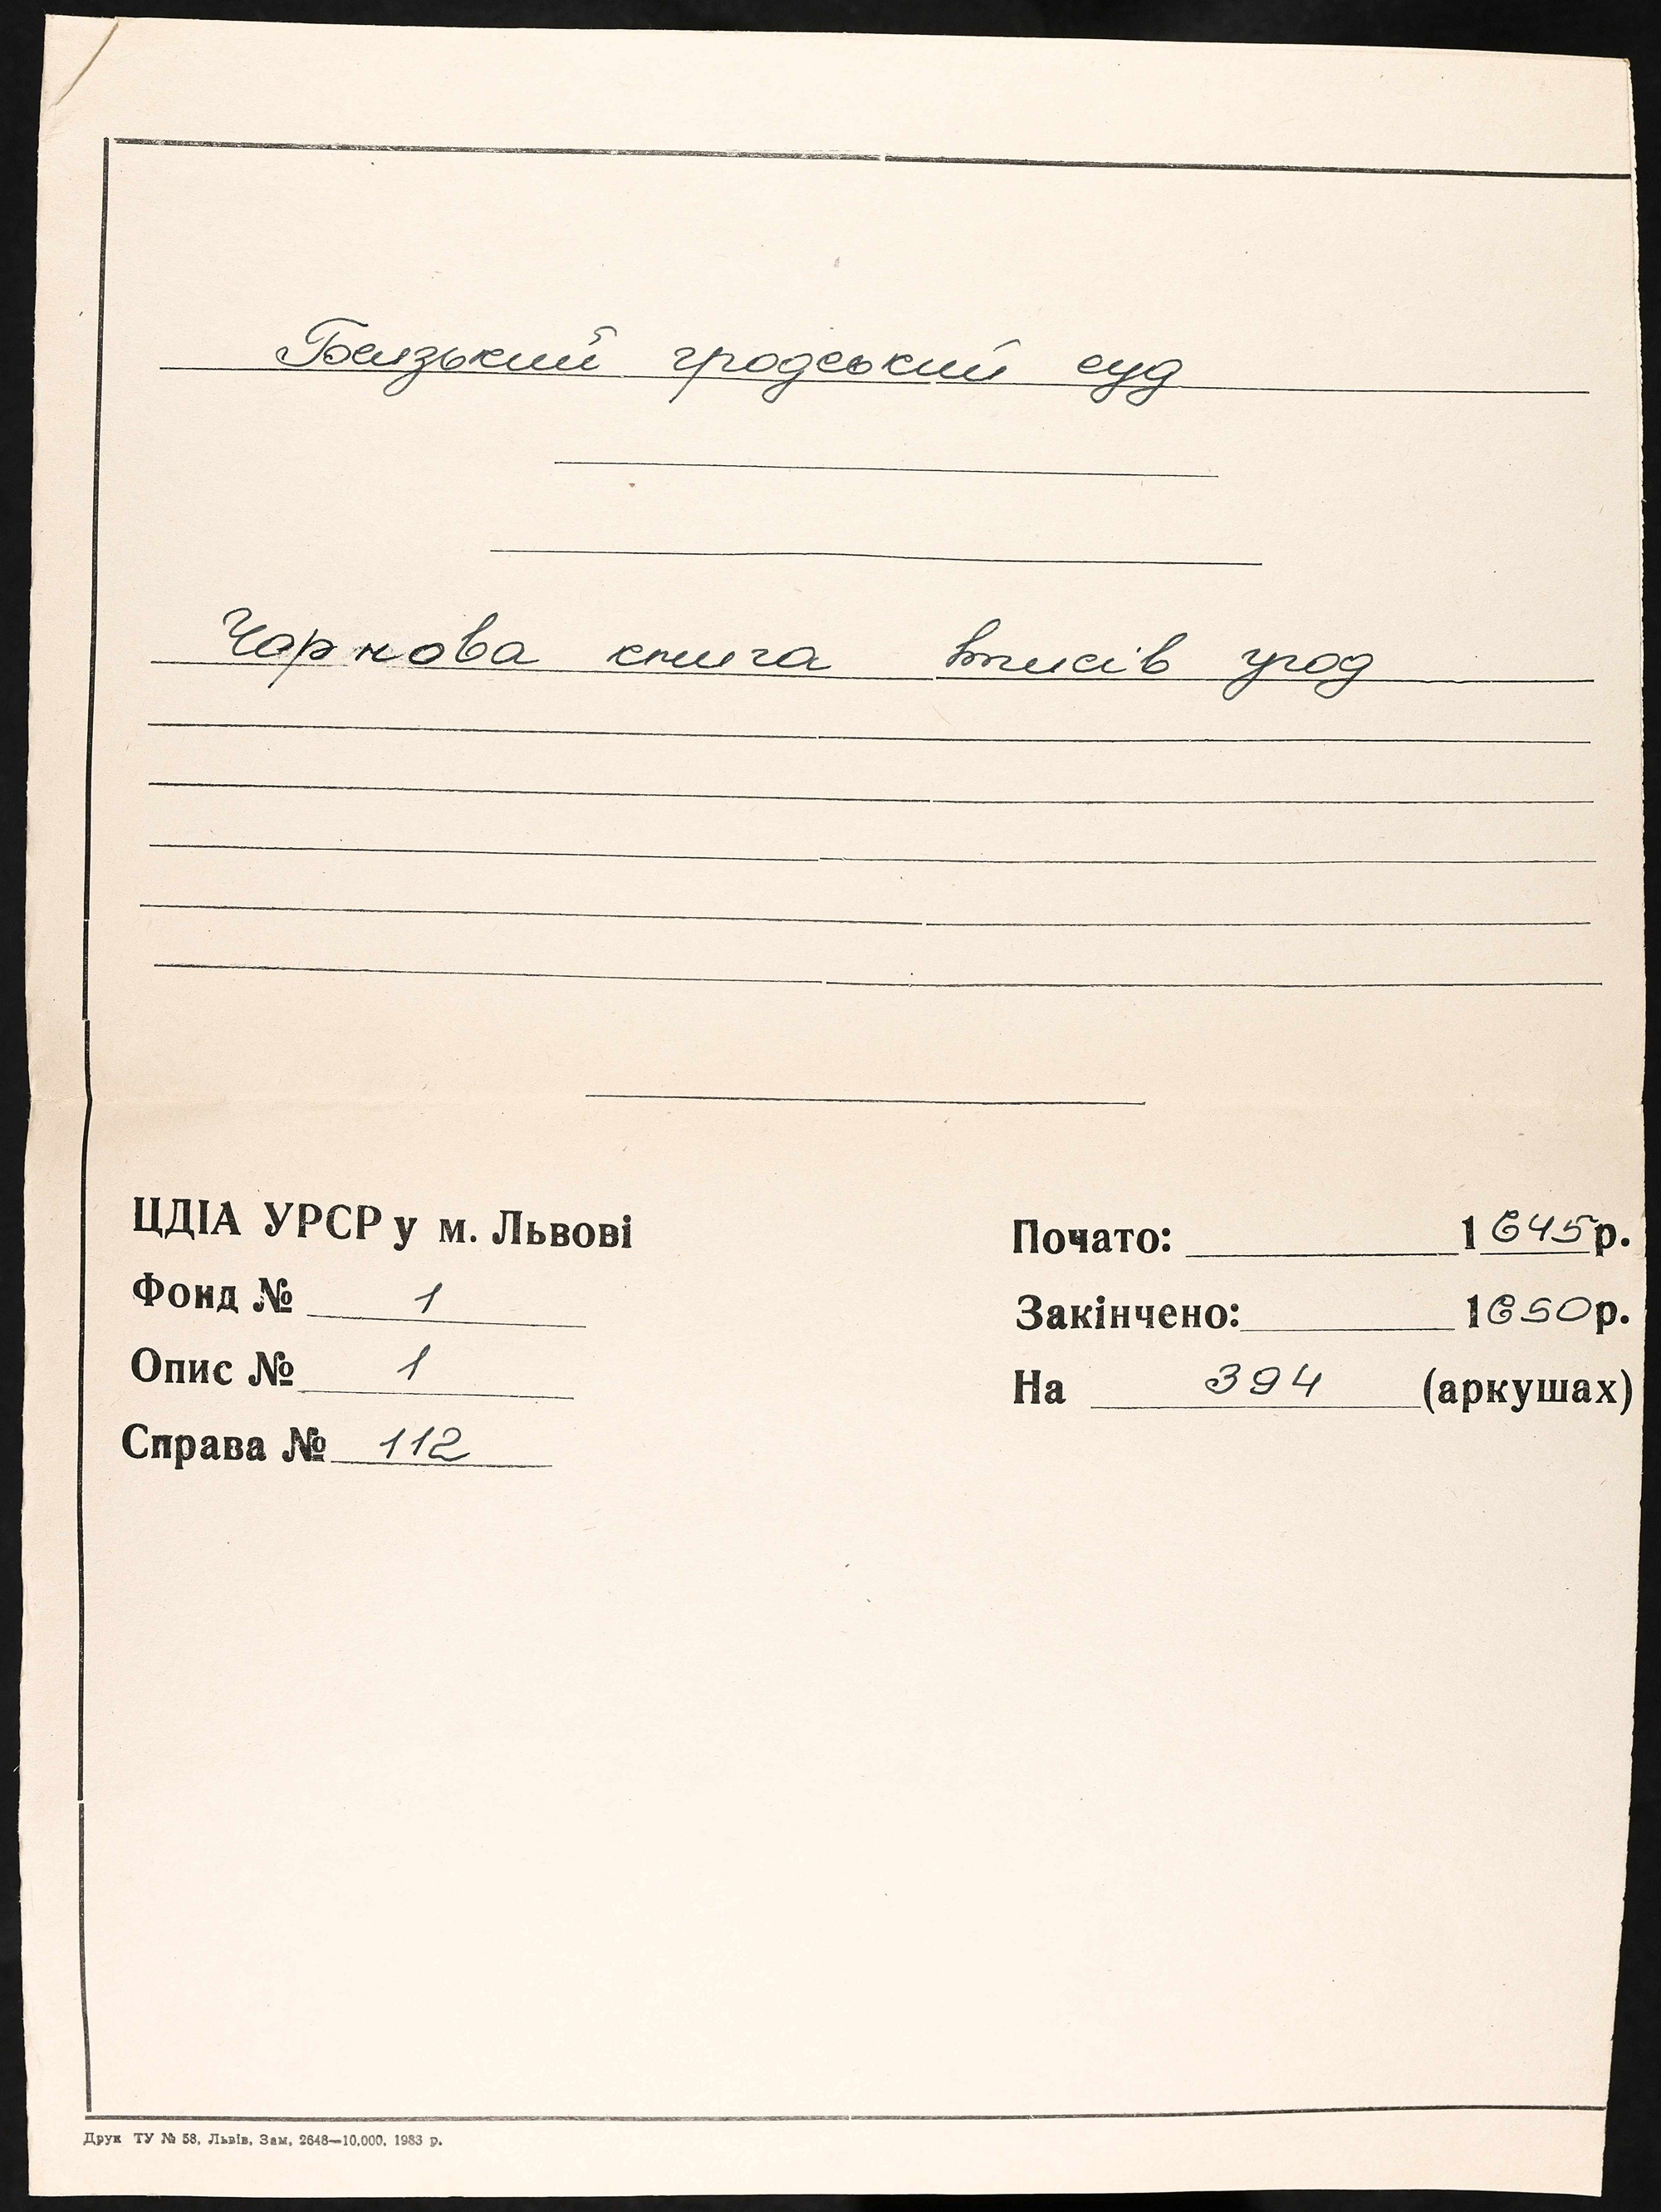 Белзький гродський суд
Чорнова книга вписів угод
ЦДІА УРСР у м. Львові
Фонд № 1
Опис № 1
Справа № 112
Почато: 1645 р.
Закінчено: 1650 р.
На 394 (аркушах)
Друк ТУ № 58, Львів, Зам. 2648—10.000. 1983 р.